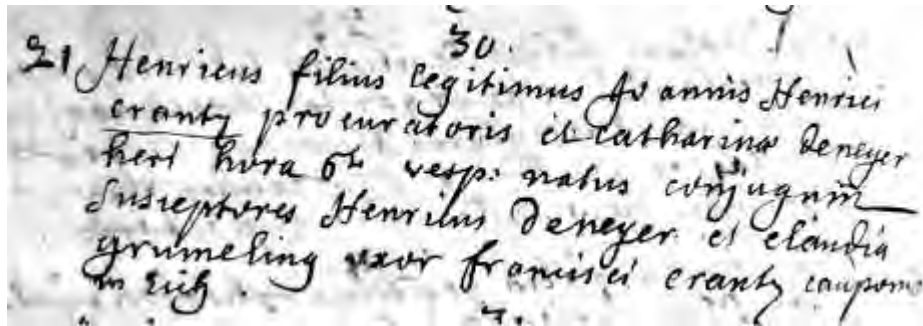 30.
21 Henricus filius legitimus Joannis Henrici
crantz procuratoris et catharinæ deneyer
heri hora 6ta vesp: natus conjugum
Susceptores Henricus deneyer et claudia
grumeling uxor francisci crantz caupon:
in Eich.